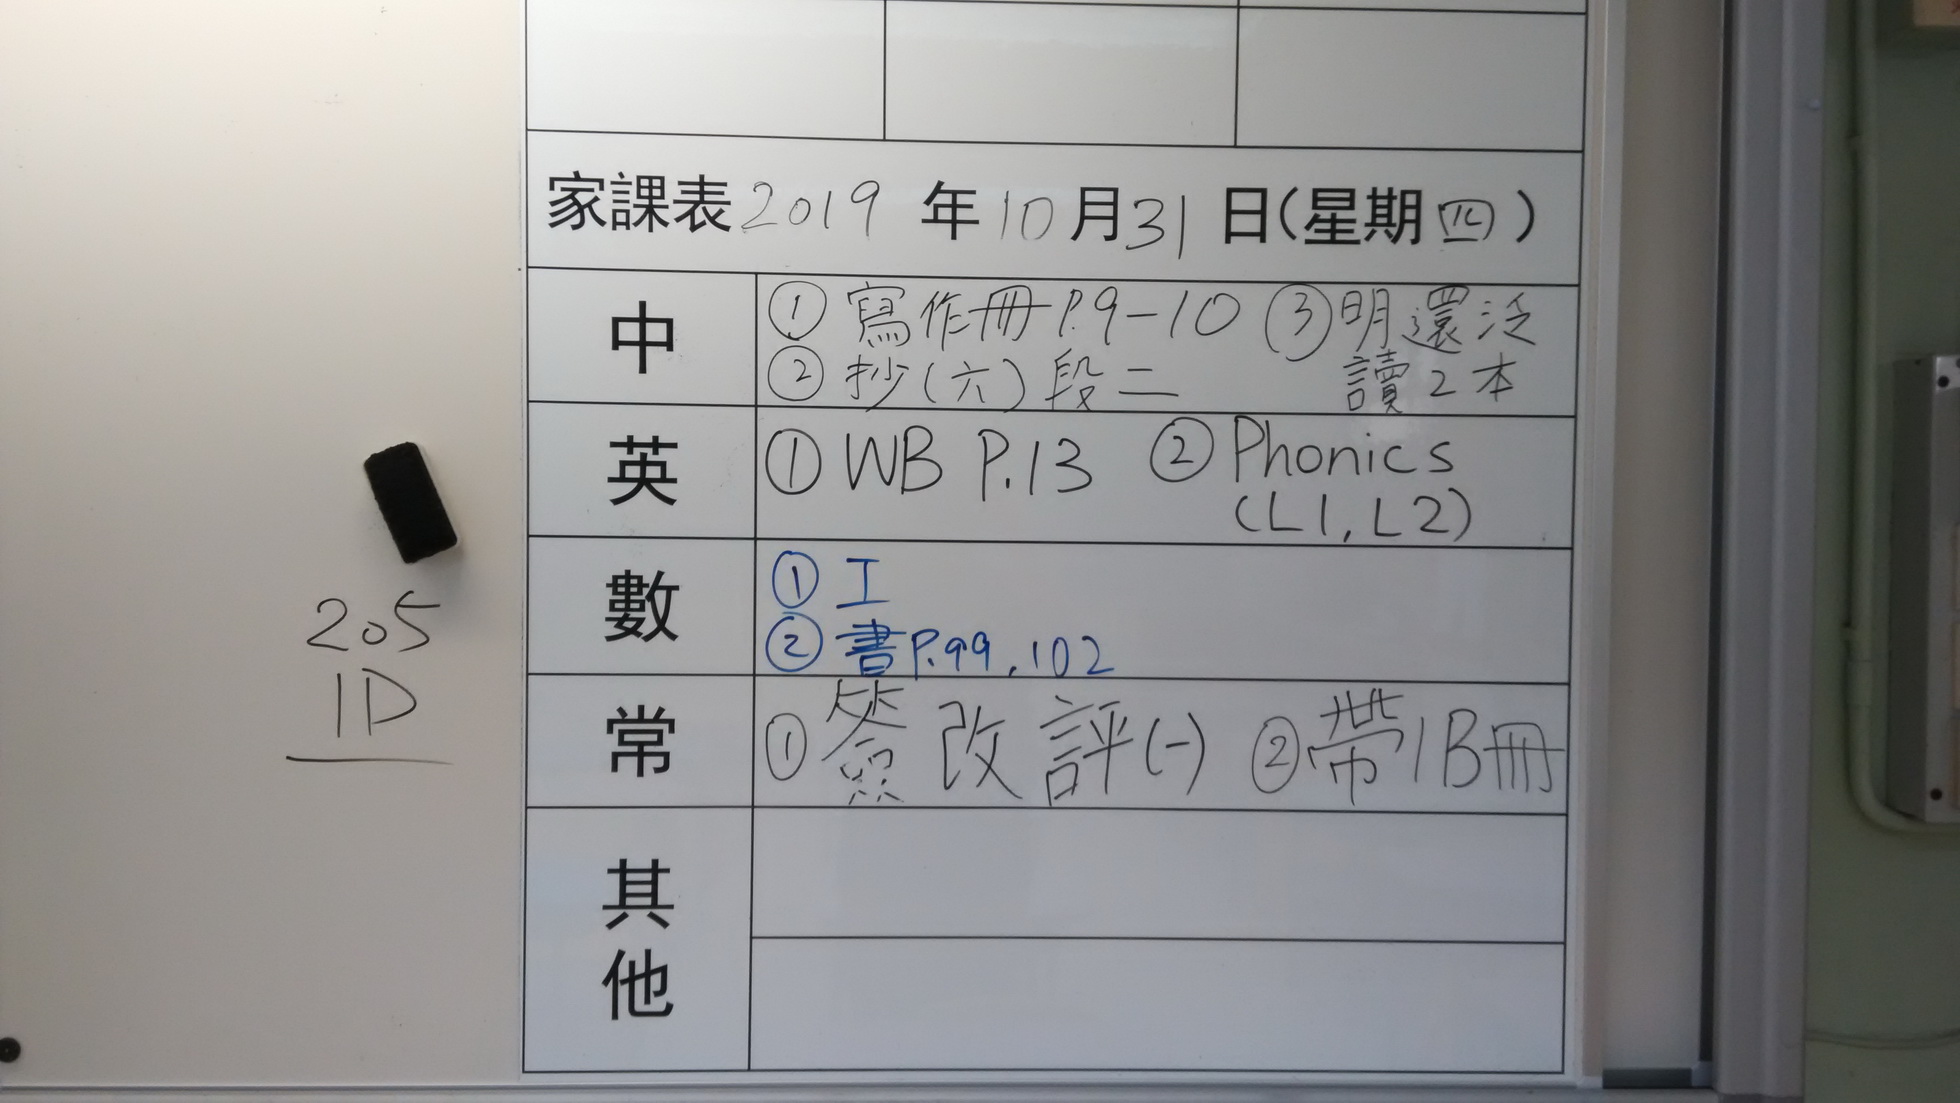 家課表 2019 年 10 月 31 日(星期四)
中
① 寫作冊 P.9-10 ③ 明還泛
② 抄(六)段二 讀2本
英
① WB P.13 ② Phonics
(L1, L2)
數
① 工
② 書P.99, 102
常
① 簽改評(一) ② 帶1B冊
其他
205
1D